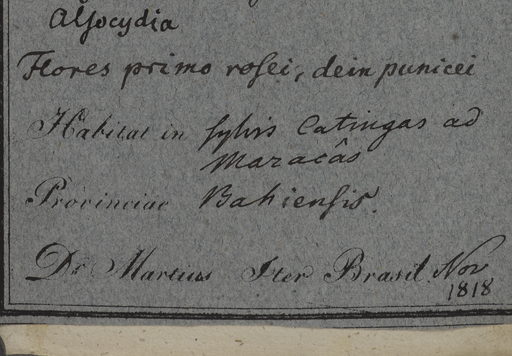 Alsocydia
Flores primo rosei, dein punicei
Habitat in sylvis Catingas ad
Maracâs
Provinciae Bahiensis.
Dr. Martius Iter Brasil. Nov
1818